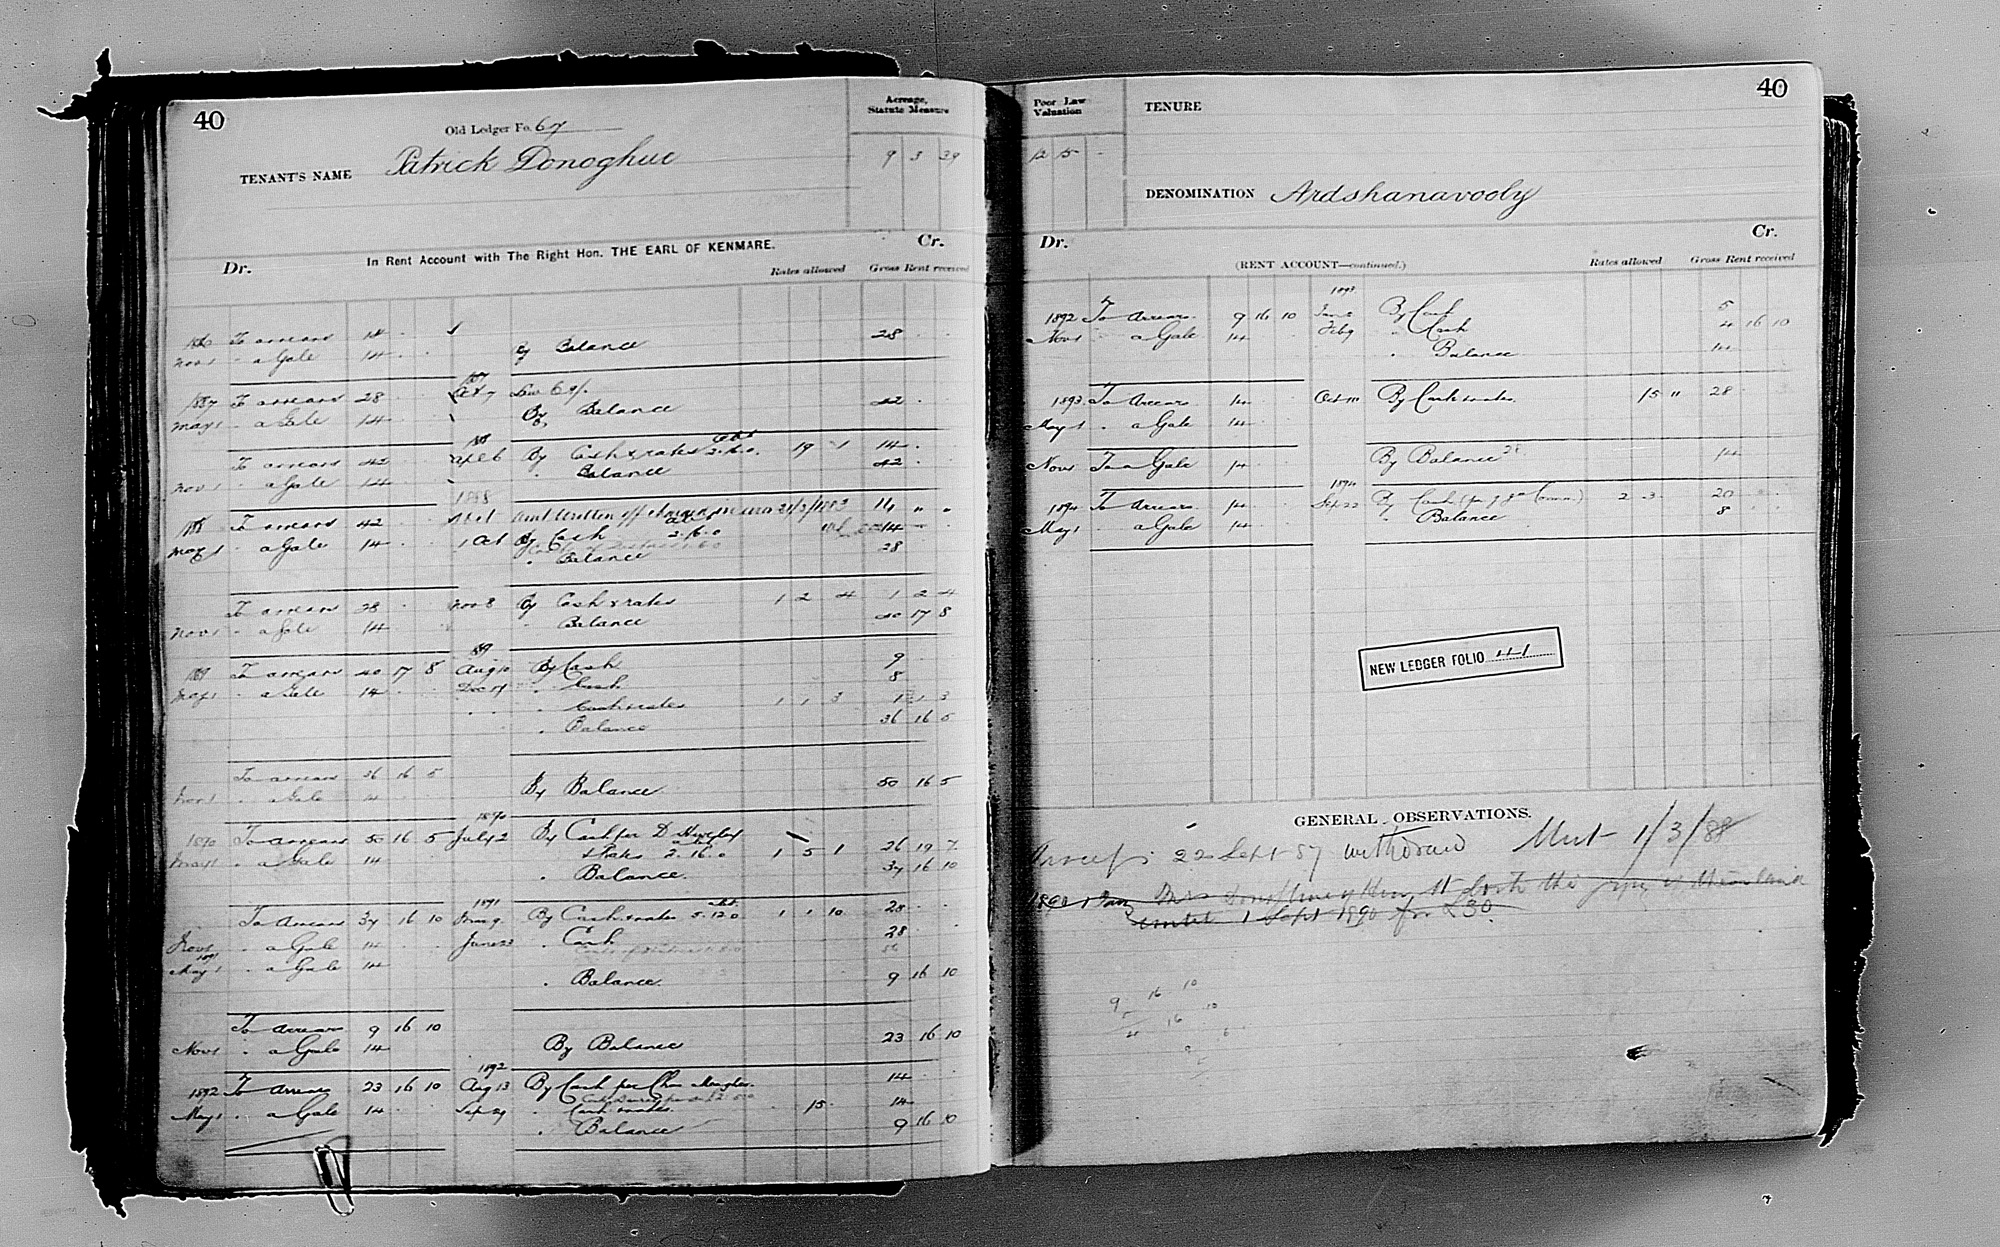 40
Old Ledger Fo. 67
Acreage, Statute Measure
TENANT'S NAME Patrick Donoghue
9 3 39
In Rent Account with The Right Hon. THE EARL OF KENMARE.
Dr. Cr.
Rates allowed Gross Rent received
1886 To arrears 14 . .
Nov 1 " a Gale 14 . . By Balance 28 . .
1887 To arrears 28 . .
May 1 " a Gale 14 . . By Balance 42 . .
1888
To arrears 42 . . By Cash & rates 2.16.0. 19 1 14 . .
Nov 1 " a Gale 14 . . " Balance 42 . .
1888
To arrears 42 . . 14 " "
May 1 " a Gale 14 . . 1 Oct By Cash 2.16.0 14
" Balance 28
To arrears 28 . . Nov 8 By Cash & rates 1 2 4 1 2 4
Nov 1 " a Gale 14 . . " Balance 40 17 8
89
1889 To arrears 40 17 8 Aug 10 By Cash 9 . .
May 1 " a Gale 14 . . Dec 17 " Cash 8
" Cash & rates 1 1 3 1 1 3
" Balance 36 16 5
To arrears 36 16 5
Nov 1 " a Gale 14 By Balance 50 16 5
1890
1890 To arrears 50 16 5 July 2 By Cash per D
May 1 " a Gale 14 & Rates 2.16.0 1 5 1 26 19 7
" Balance. 37 16 10
1891
To Arrears 37 16 10 By Cash & rates 5.12.0 1 1 10 28 . .
Nov 1 " a Gale 14 June 23 " Cash 28
1891
May 1 " a Gale 14
" Balance. 9 16 10
To Arrears 9 16 10
Nov 1 " a Gale 14 By Balance 23 16 10
1892
1892 To Arrears 23 16 10 Aug 13 By Cash per 14
May 1 " a Gale 14 Sep 29 " Cash & rates. 15 14
" Balance 9 16 10
40
Poor Law Valuation
TENURE
12 15 -
DENOMINATION Ardshanavooly
Dr. Cr.
(RENT ACCOUNT—continued.)
Rates allowed Gross Rent received
1893
1892 To Arrears 9 16 10 By Cash 5
Nov 1 " a Gale 14 Feby " Cash 4 16 10
" Balance 14
1893 To Arrears 14 Oct By Cash & rates 15 " 28
May 1 " a Gale 14
Nov 1 To a Gale 14 By Balance 14
1894
1894 To Arrears 14 Sep 22 By Cash 2 3 20
May 1 " a Gale 14 " Balance 8
NEW LEDGER FOLIO 41
GENERAL OBSERVATIONS.
22 Sept 87 withdrawn 1/3/88
until 1 Sept 1890 for £30.
9 16 10